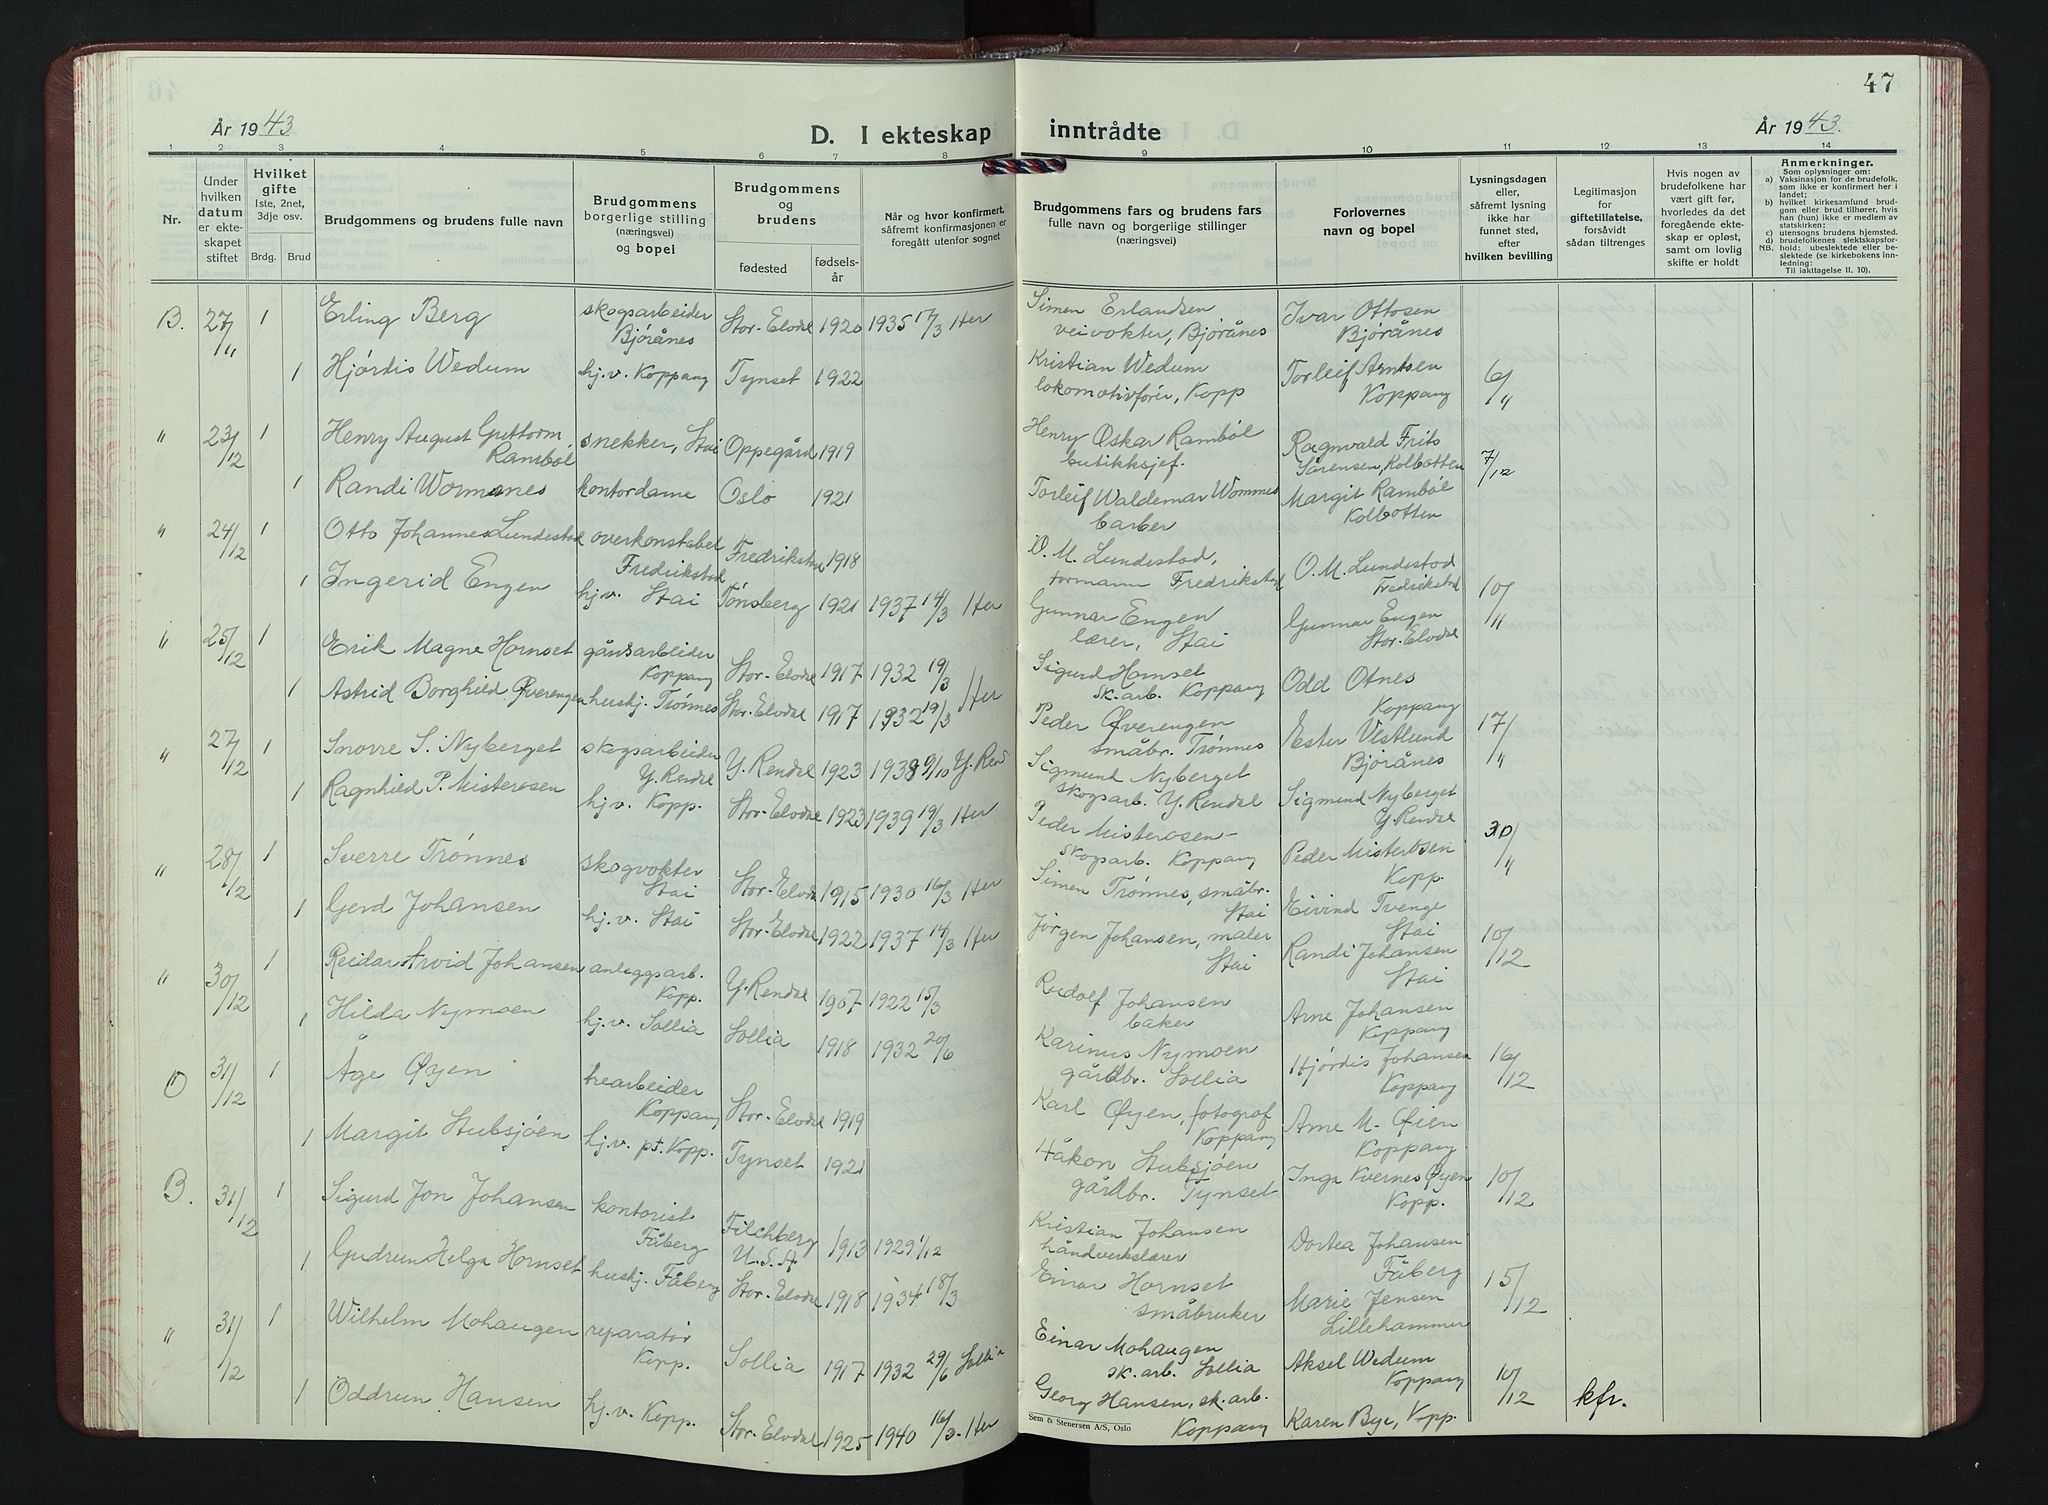 47
År 1943
D. I ekteskap inntrådte
År 1943.
1 2 3 4 5 6 7 8 9 10 11 12 13 14
Nr.
Under hvilken datum er ekteskapet stiftet
Hvilket gifte 1ste, 2net, 3dje osv.
Brdg. Brud
Brudgommens og brudens fulle navn
Brudgommens borgerlige stilling (næringsvei) og bopel
Brudgommens og brudens
fødested
fødselsår
Når og hvor konfirmert, såfremt konfirmasjonen er foregått utenfor sognet
Brudgommens fars og brudens fars fulle navn og borgerlige stillinger (næringsvei)
Forlovernes navn og bopel
Lysningsdagen eller, såfremt lysning ikke har funnet sted, efter hvilken bevilling
Legitimasjon for giftetillatelse, forsåvidt sådan tiltrenges
Hvis nogen av brudefolkene har vært gift før, hvorledes da det foregående ekteskap er opløst, samt om lovlig skifte er holdt
Anmerkninger.
Som oplysninger om:
a) Vaksinasjon for de brudefolk, som ikke er konfirmert her i landet;
b) hvilket kirkesamfund brudgom eller brud tilhører, hvis han (hun) ikke er medlem av statskirken;
c) utensogns brudens hjemsted.
d) brudefolkenes slektskapsforhold: ubeslektede eller beslektede (se kirkebokens innledning:
NB. Til iakttagelse II. 10).
B. 27/11 1 Erling Berg skogsarbeider Bjørånes Stor-Elvdal 1920 1935 17/3 Her Simen Erlandsen veivokter, Bjørånes Ivar Ottosen Bjørånes
1 Hjørdis Wedum hj.v. Koppang Tynset 1922 Kristian Wedum lokomotivfører, Kopp Torleif Arntsen Koppang 6/11
" 23/12 1 Henry August Guttorm Rambøl snekker, Stai Oppegård 1919 Henry Oskar Rambøl butikksjef. Ragnwald Frits Sørensen, Kolbotten 7/12
1 Randi Wommnes kontordame Oslo 1921 Torleif Waldemar Wommes barber Margit Rambøl Kolbotten
" 24/12 1 Otto Johannes Lundestad overkonstabel Fredrikstad Fredrikstad 1918 O. M. Lundestad, formann Fredrikstad O. M. Lundestad Fredrikstad
1 Ingerid Engen hj.v. Stai Tønsberg 1921 1937 14/3 Her Gunnar Engen lærer, Stai Gunnar Engen Stor-Elvdal 10/11
" 25/12 1 Erik Magne Hornset gårdsarbeider Koppang Stor-Elvdal 1917 1932 19/3 Her Sigurd Hornset sk.arb. Koppang Odd Otnes Koppang
1 Astrid Borghild Øverengen hushj. Trønnes Stor-Elvdal 1917 1932 19/3 Peder Øverengen småbr. Trønnes Ester Vestlund Bjørånes 17/11
" 27/12 1 Snorre S. Nyberget skogsarbeider Y. Rendal Y. Rendal 1923 1938 9/10 Y. Rend Sigmund Nyberget skogsarb. Y. Rendal Sigmund Nyberget Y. Rendal
1 Ragnhild P. Misterosen hj.v. Kopp. Stor-Elvdal 1923 1939 19/3 Her Peder Misterosen skogsarb. Koppang Peder Misterosen Kopp. 30/11
" 28/12 1 Sverre Trønnes skogvokter Stai Stor-Elvd 1915 1930 16/3 Her Simen Trønnes, småbr. Stai Eivind Tvenge Stai
1 Gerd Johansen hj.v. Stai Stor-Elvdal 1922 1937 14/3 Her Jørgen Johansen, maler Stai Randi Johansen Stai 10/12
" 30/12 1 Reidar Arvid Johansen anleggsarb. Kopp. Y. Rendal 1907 1922 15/3 Rudolf Johansen baker Arne Johansen Koppang
1 Hilda Nymoen hj.v. Sollia Sollia 1918 1932 20/6 Karinus Nymoen gårdbr. Sollia Hjørdis Johansen Koppang 16/12
O 31/12 1 Åge Øyen trearbeider Koppang Stor-Elvdal 1919 Karl Øyen, fotograf Koppang Arne M. Øien Koppang
1 Margit Stubsjøen hj.v. pt. Kopp. Tynset 1921 Håkon Stubsjøen gårdbr. Tynset Inga Kvernes Øyen Kopp. 10/12
B. 31/12 1 Sigurd Jon Johansen kontorist Fåberg Filchberg U.S.A 1913 1929 1/12 Kristian Johansen håndverkslærer Dortea Johansen Fåberg
1 Gudrun Helga Hornset hushj. Fåberg Stor-Elvdal 1918 1934 18/3 Einar Hornset småbruker Marie Jensen Lillehammer 15/12
" 31/12 1 Wilhelm Mohaugen reparatør Kopp. Sollia 1917 1932 29/6 Sollia Einar Mohaugen sk.arb. Sollia Aksel Wedum Koppang
1 Oddrun Hansen hj.v. Kopp. Stor-Elvdal 1925 1940 16/3. Her Georg Hansen, sk.arb. Koppang Karen Bye, Kopp. 10/12 kfr.
Sem & Stenersen A/S, Oslo